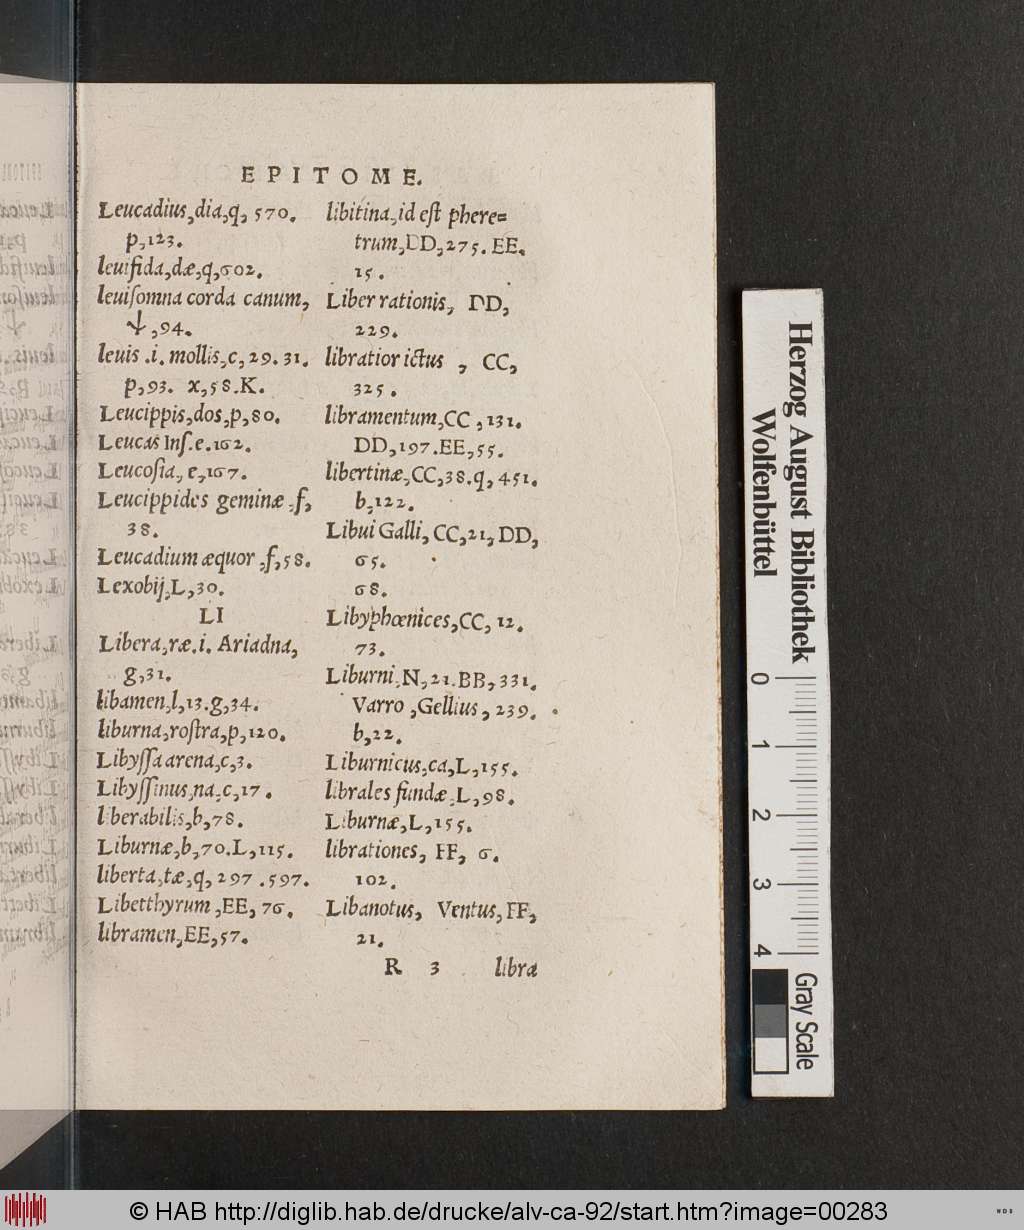 EPITOME.
Leucadius,dia,q, 570.
p,123.
leuifida,dæ,q,602.
leuiſomna corda canum,
ψ,94.
leuis .i. mollis,c,29.31.
p,93. x,58.K.
Leucippis,dos,p,80.
Leucas Inſ.e.162.
Leucoſia, e,167.
Leucippides geminæ,f,
38.
Leucadium æquor,f,58.
Lexobij,L,30.
LI
Libera,ræ.i. Ariadna,
g,31.
libamen,l,13.g,34.
liburna,roſtra,p,120.
Libyſſa arena,c,3.
Libyſſinus,na,c,17.
liberabilis,b,78.
Liburnæ,b,70.L,115.
liberta,tæ,q,297.597.
Libetthyrum,EE,76.
libramen,EE,57.
libitina,id eſt phere=
trum,DD,275.EE.
15.
Liber rationis, DD,
229.
libratior ictus , CC,
325.
libramentum,CC,131.
DD,197.EE,55.
libertinæ,CC,38.q,451.
b,122.
Libui Galli,CC,21,DD,
65.
68.
Libyphœnices,CC,12.
73.
Liburni,N,21.BB,331.
Varro ,Gellius ,239.
b,22.
Liburnicus,ca,L,155.
librales fundæ,L,98.
Liburnæ,L,155.
librationes, FF, 6.
102.
Libanotus, Ventus,FF,
21.
R 3 libra
Herzog August Bibliothek
Wolfenbüttel
0 1 2 3 4
Gray Scale
© HAB http://diglib.hab.de/drucke/alv-ca-92/start.htm?image=00283